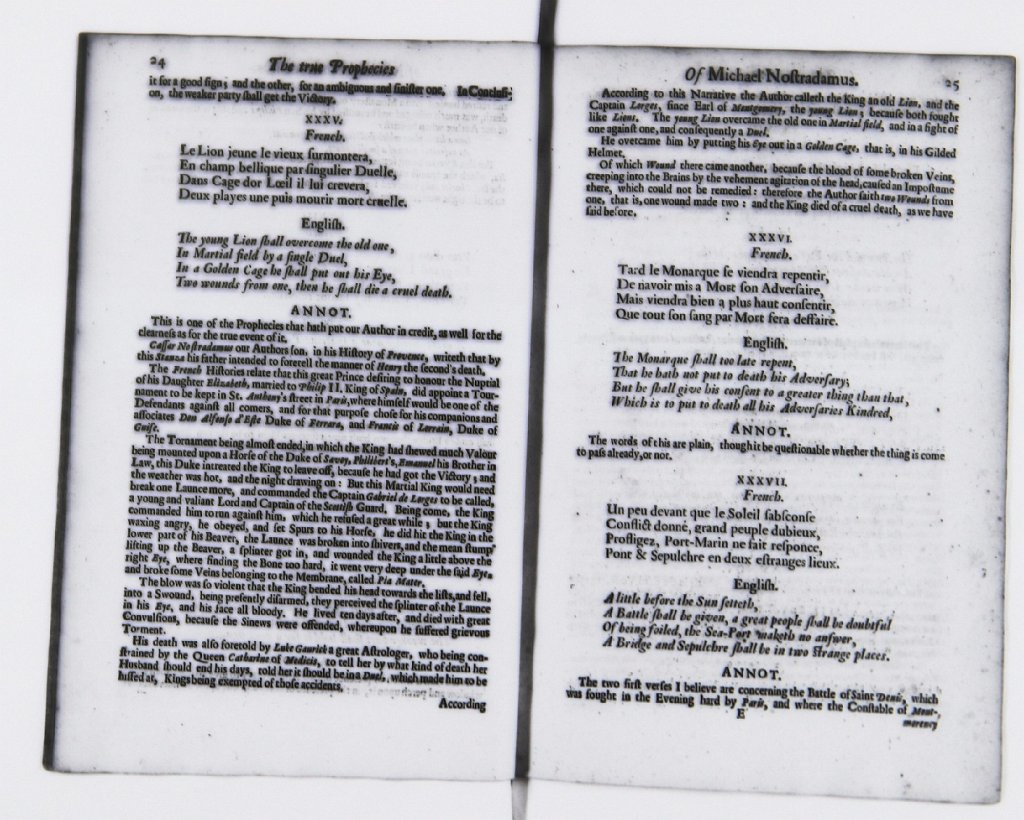 24
The true Prophecies
it for a good sign; and the other, for an ambiguous and sinister one. In Conclusi-
on, the weaker party shall get the Victory.
XXXV.
French.
Le Lion jeune le vieux surmontera,
En champ bellique par singulier Duelle,
Dans Cage dor Lœil il lui crevera,
Deux playes une puis mourir mort cruelle.
English.
The young Lion shall overcome the old one,
In Martial field by a single Duel,
In a Golden Cage he shall put out his Eye,
Two wounds from one, then he shall die a cruel death.
ANNOT.
This is one of the Prophecies that hath put our Author in credit, as well for the
clearness as for the true event of it.
Cæsar Nostradamus our Authors son, in his History of Provence, writeth that by
this Stanza his father intended to foretell the manner of Henry the second's death.
The French Histories relate that this great Prince desiring to honour the Nuptial
of his Daughter Elizabeth, married to Philip II. King of Spain, did appoint a Tour-
nament to be kept in St. Anthony's street in Paris, where himself would be one of the
Defendants against all comers, and for that purpose chose for his companions and
associates Don Alfonso d'Este Duke of Ferrara, and Francis of Lorrain, Duke of
Guise.
The Tornament being almost ended, in which the King had shewed much Valour
being mounted upon a Horse of the Duke of Savoy, Philibert's, Emanuel his Brother in
Law, this Duke intreated the King to leave off, because he had got the Victory; and
the weather was hot, and the night drawing on: But this Martial King would need
break one Launce more, and commanded the Captain Gabriel de Lorges to be called,
a young and valiant Lord and Captain of the Scotish Guard. Being come, the King
commanded him to run against him, which he refused a great while; but the King
waxing angry, he obeyed, and set Spurs to his Horse, he did hit the King in the
lower part of his Beaver, the Launce was broken into shivers, and the mean stump
lifting up the Beaver, a splinter got in, and wounded the King a little above the
right Eye, where finding the Bone too hard, it went very deep under the said Eye,
and broke some Veins belonging to the Membrane, called Pia Mater.
The blow was so violent that the King bended his head towards the lists, and fell,
into a Swound, being presently disarmed, they perceived the splinter of the Launce
in his Eye, and his face all bloody. He lived ten days after, and died with great
Convulsions, because the Sinews were offended, whereupon he suffered grievous
Torment.
His death was also foretold by Luke Gaurick a great Astrologer, who being con-
strained by the Queen Catharine of Medicis, to tell her by what kind of death her
Husband should end his days, told her it should be in a Duel, which made him to be
hissed at, Kings being exempted of those accidents.
According
Of Michael Nostradamus.
25
According to this Narrative the Author calleth the King an old Lion, and the
Captain Lorges, since Earl of Montgomery, the young Lion; because both fought
like Lions. The young Lion overcame the old one in Martial field, and in a fight of
one against one, and consequently a Duel.
He overcame him by putting his Eye out in a Golden Cage, that is, in his Gilded
Helmet.
Of which Wound there came another, because the blood of some broken Veins,
creeping into the Brains by the vehement agitation of the head, caused an Impostume
there, which could not be remedied: therefore the Author saith two Wounds from
one, that is, one wound made two: and the King died of a cruel death, as we have
said before.
XXXVI.
French.
Tard le Monarque se viendra repentir,
De navoir mis a Mort son Adversaire,
Mais viendra bien a plus haut consentir,
Que tout son sang par Mort fera deffaire.
English.
The Monarque shall too late repent,
That he hath not put to death his Adversary;
But he shall give his consent to a greater thing than that,
Which is to put to death all his Adversaries Kindred,
ANNOT.
The words of this are plain, though it be questionable whether the thing is come
to pass already, or not.
XXXVII.
French.
Un peu devant que le Soleil sabsconse
Conflict donné, grand peuple dubieux,
Profligez, Port-Marin ne fait response,
Pont & Sepulchre en deux estranges lieux.
English.
A little before the Sun setteth,
A Battle shall be given, a great people shall be doubtful
Of being foiled, the Sea-Port maketh no answer,
A Bridge and Sepulchre shall be in two strange places.
ANNOT.
The two first verses I believe are concerning the Battle of Saint Denis, which
was fought in the Evening hard by Paris, and where the Constable of Mont-
E
morency